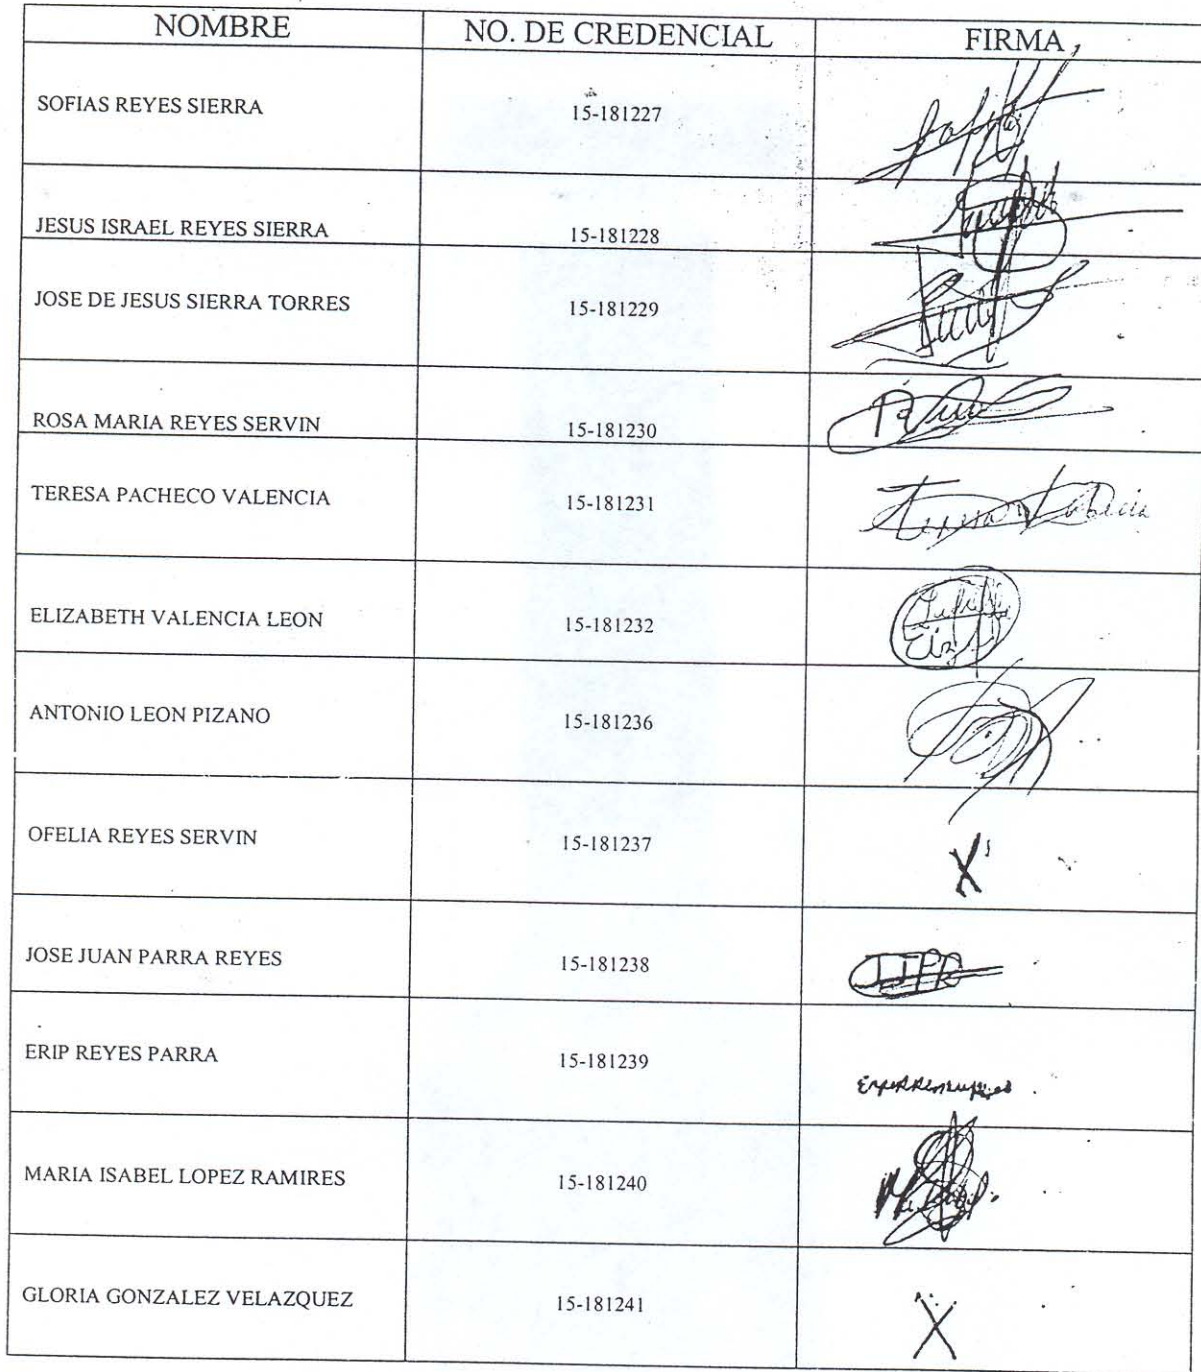 NOMBRE NO. DE CREDENCIAL FIRMA
SOFIAS REYES SIERRA 15-181227
JESUS ISRAEL REYES SIERRA 15-181228
JOSE DE JESUS SIERRA TORRES 15-181229
ROSA MARIA REYES SERVIN 15-181230
TERESA PACHECO VALENCIA 15-181231 Teresa
ELIZABETH VALENCIA LEON 15-181232
ANTONIO LEON PIZANO 15-181236
OFELIA REYES SERVIN 15-181237 X
JOSE JUAN PARRA REYES 15-181238 JJPR
ERIP REYES PARRA 15-181239
MARIA ISABEL LOPEZ RAMIRES 15-181240
GLORIA GONZALEZ VELAZQUEZ 15-181241 X